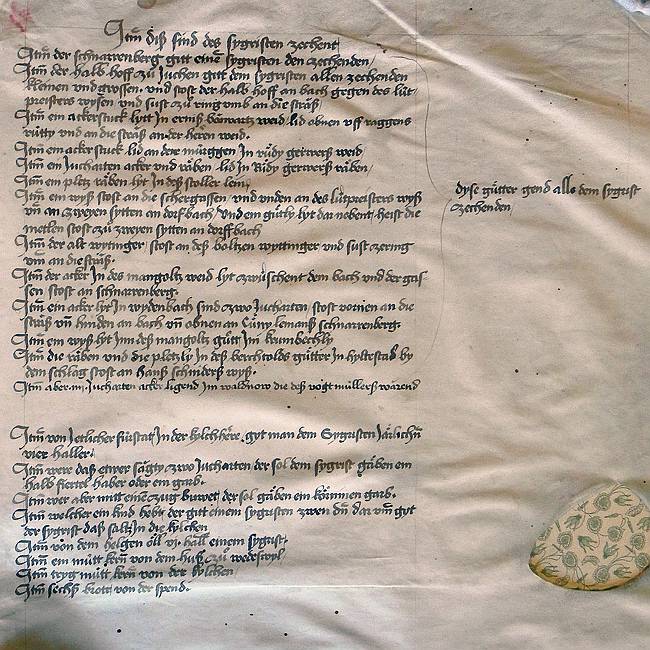 Itm diß sind des sygristen zechent
Itm der schnarrenberg gitt eine sygristen den zechenden
Itm der halb hoff zu Juchen gitt dem sygristen allen zechenden
kleinen und grossen und stost der halb hoff an bach gegen des lüt
preisters wysen und sust zu ring umb an die straß
Itm ein ackerstuck lytt In weid lid obnen uff raggens
rütty und an die straß an der heren weid.
Itm ein ackerstuck lid an dem In rüdy gerwerß weid
Itm ein Jucharten acker und räben lid In Rüdy gerwerß räben
Itm ein pletz räben lyt In deß stoller lein
Itm ein wyß stost an die schergassen und unden an des lütpreisters wyß
un an zweyen sytten an dorfbach und ein gütly lyt dar nebent heist die
metlen stost zu zweyen sytten an dorffbach
Itm der alt wytinger stost an deß boltzen wyttinger und sust zering
um an die straß.
Itm der acker In des mangoltz weid lyt zwüschent dem bach und der gas
sen stost an schnarrenberg.
Itm ein acker lyt In wydenbach sind zwo Jucharten stost vornen an die
straß un hinden an bach un obnen an Cuny lemanß schnarrenberg.
Itm ein wyß lyt Im deß mangoltz gütt Im krumbechly
Itm die räben und die pletzly In deß berchtolds gütter In by
dem schlag stost an hanß schniders wyß.
Itm aber Jucharten acker ligend Im waldnow die deß vogt müllerß warend
dyse gütter gend alle dem sygrist
zechenden
Itm von Jetlicher fürstatt In der kylchhere gyt man dem Sygristen Järlichn
vier haller.
Itm were daß etwer sagty zwo Jucharten der sol dem sygrist gäben ein
halb fiertel haber oder ein garb.
Itm wer aber mitt eine zug buwet der sol gäben ein garb.
Itm welcher ein kind hebt der gitt einem sygristen zwen dar um gyt
der sygrist daß saltz In die kylchen
Itm von dem helgen öll vj hall einem sygrist
Itm ein mütt kern von dem huß zu wedeswyl
Itm mütt kern von der kylchen
Itm sechß brott von der spend.